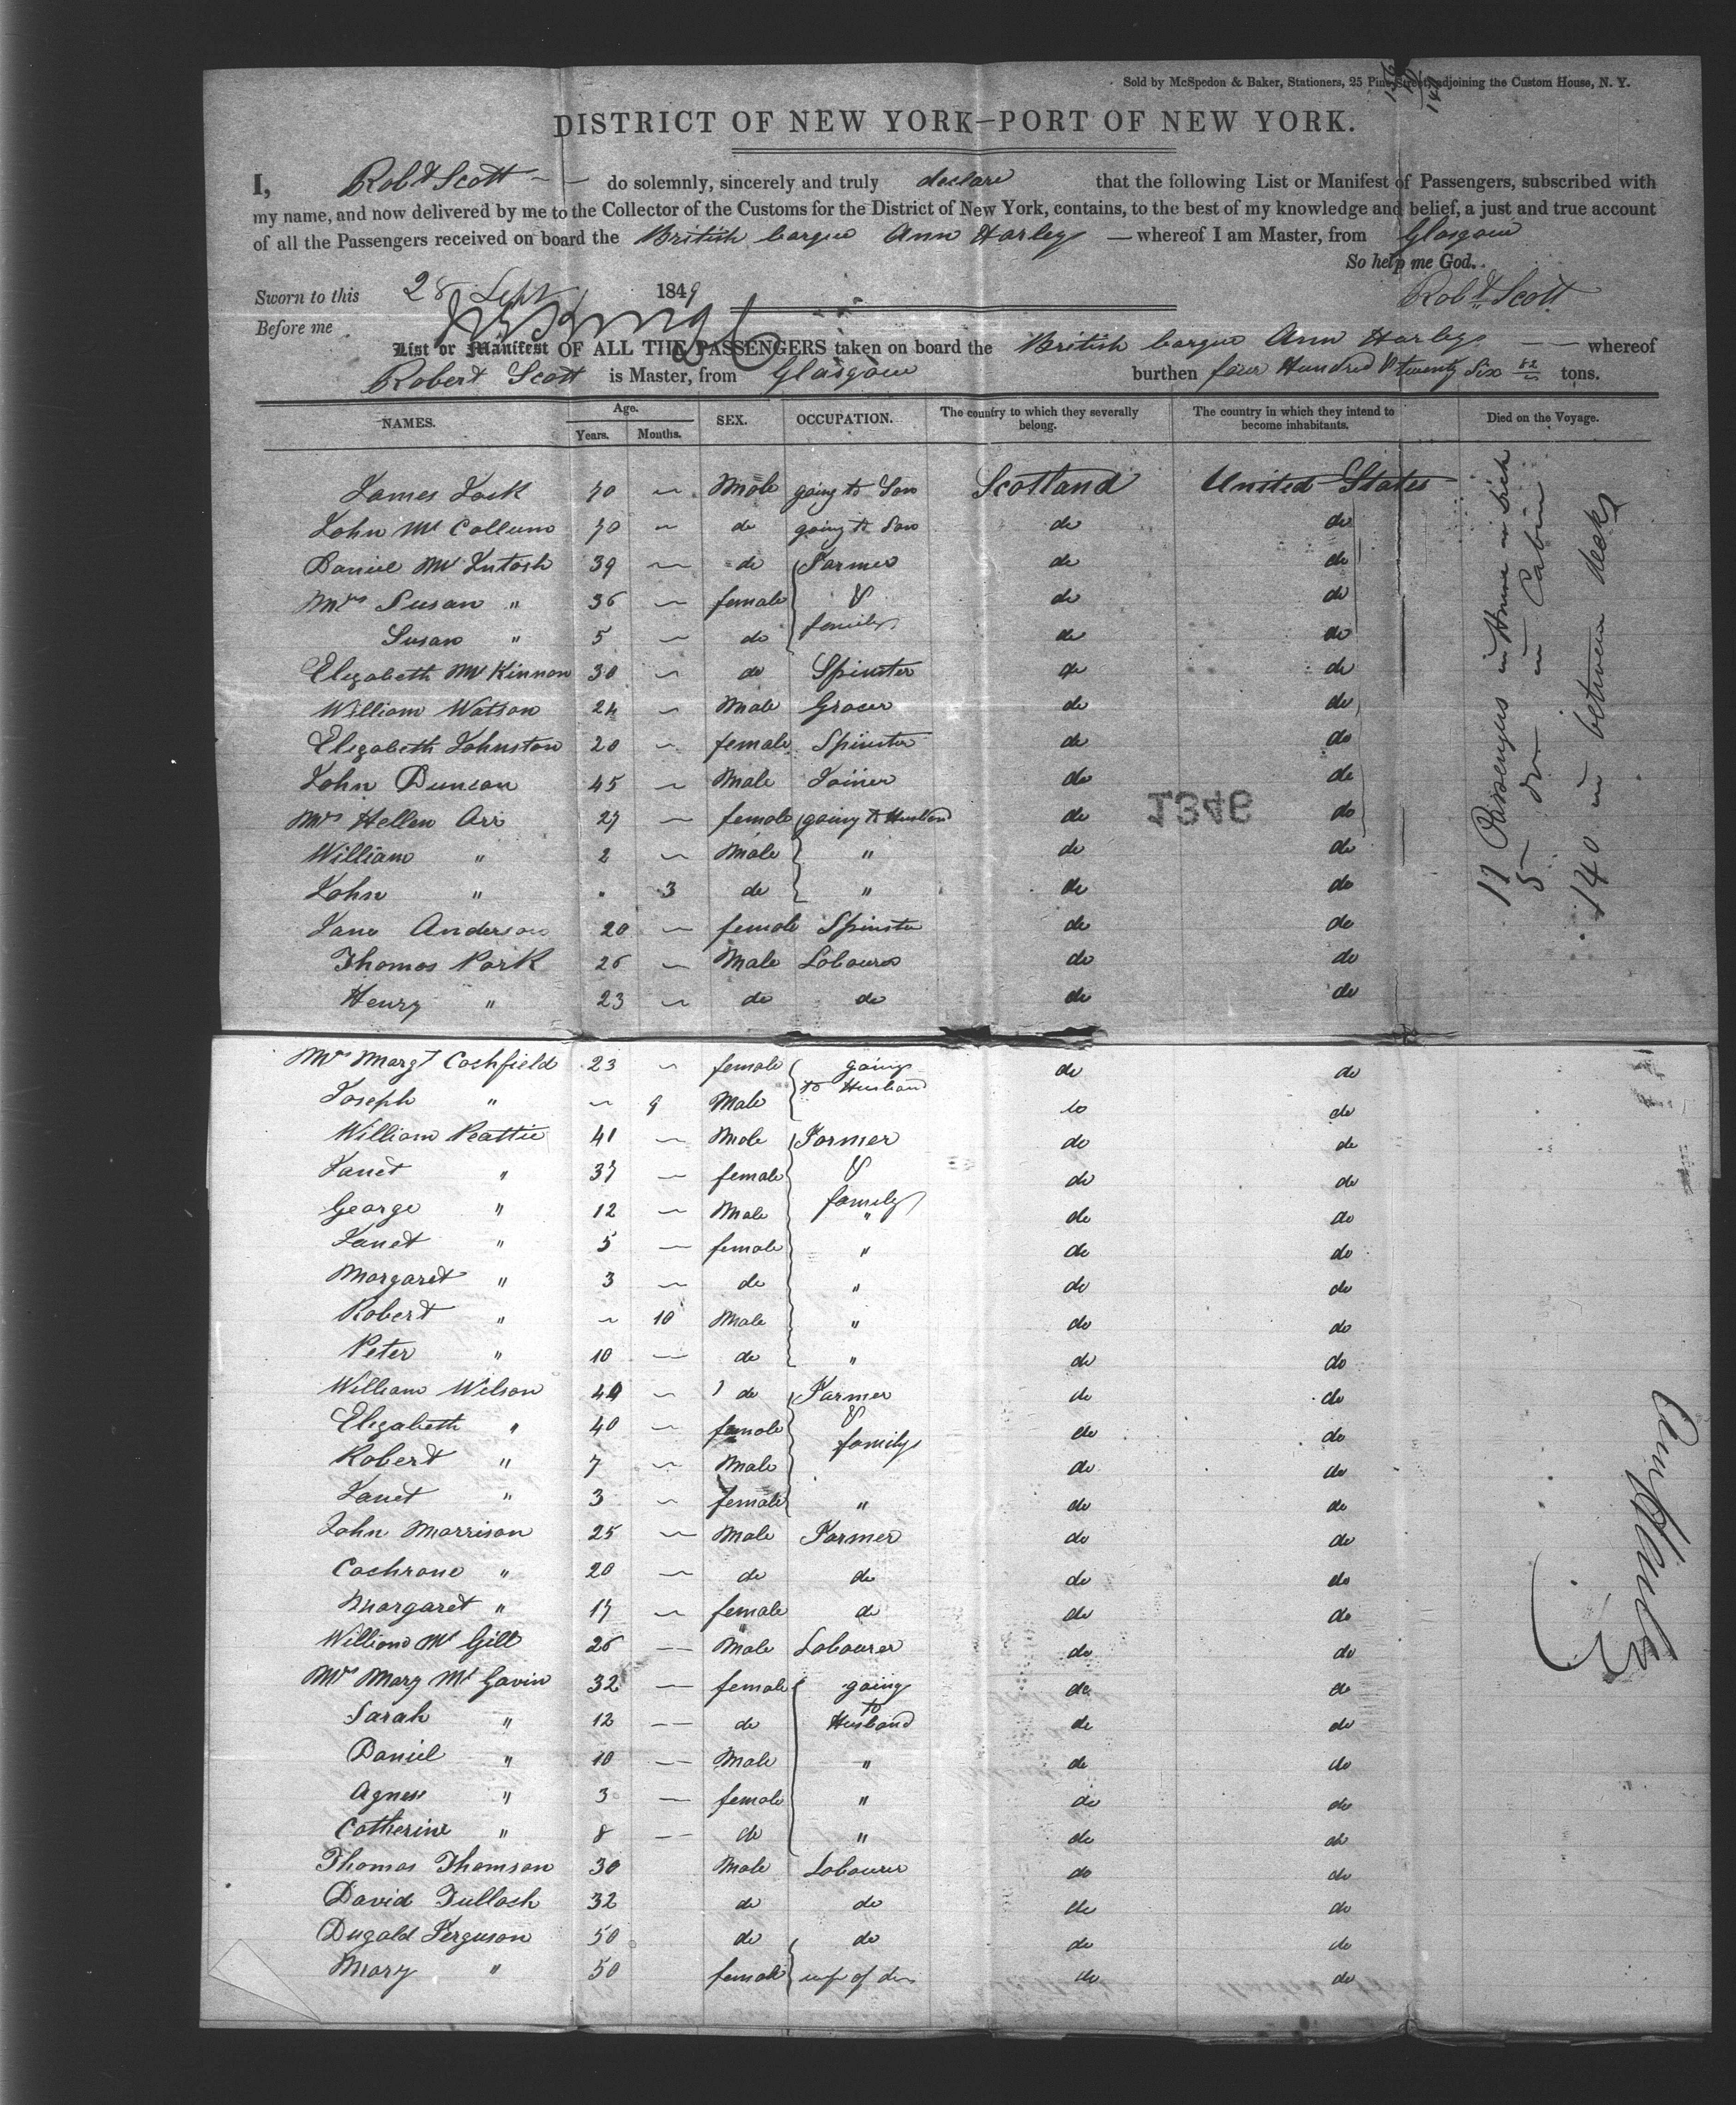 Sold by McSpedon & Baker, Stationers, 25 Pine Street, adjoining the Custom House, N. Y.
DISTRICT OF NEW YORK—PORT OF NEW YORK.
I, Robt Scott do solemnly, sincerely and truly declare that the following List or Manifest of Passengers, subscribed with
my name, and now delivered by me to the Collector of the Customs for the District of New York, contains, to the best of my knowledge and belief, a just and true account
of all the Passengers received on board the British barque Ann Harley — whereof I am Master, from Glasgow
So help me God.
Sworn to this 28 Sept 1849 Robt Scott
Before me
List or Manifest OF ALL THE PASSENGERS taken on board the British barque Ann Harley whereof
Robert Scott is Master, from Glasgow burthen four Hundred & twenty six 82 tons.
NAMES. Age. Years. Months. SEX. OCCUPATION. The country to which they severally belong. The country in which they intend to become inhabitants. Died on the Voyage.
James Lock 70 Male going to Son Scotland United States
John Mc Collum 70 do going to Son do do
Daniel Mc Intosh 39 do Farmer do do
Mrs Susan " 36 female & do do
Susan " 5 do family do do
Elizabeth Mc Kinnon 30 do Spinster do do
William Watson 24 Male Grocer do do
Elizabeth Johnston 20 female Spinster do do
John Duncan 45 Male Joiner do do
Mrs Hellen Orr 27 female going to Husband do do
William " 2 Male " do do
John " 3 do " do do
Jane Anderson 20 female Spinster do do
Thomas Park 26 Male Labourer do do
Henry " 23 do do do do
Mrs Margt Cochfield 23 female going to Husband do do
Joseph " 9 Male do do
William Peattie 41 Male Farmer do do
Janet " 37 female & do do
George " 12 Male family " do do
Janet " 5 female " do do
Margaret " 3 do " do do
Robert " 10 Male " do do
Peter " 10 do " do do
William Wilson do Farmer do do
Elizabeth " 40 female & do do
Robert " 7 Male family do do
Janet " 3 female " do do
John Morrison 25 Male Farmer do do
Cochrane " 20 do do do do
Margaret " 17 female do do do
William Mc Gill 26 Male Labourer do do
Mrs Mary Mc Gavin 32 female going do do
Sarah " 12 do to Husband do do
Daniel " 10 Male " do do
Agness " 3 female " do do
Catherine " 8 do " do do
Thomas Thomson 30 Male Labourer do do
David Tulloch 32 do do do do
Dugald Ferguson 50 do do do do
Mary " 50 female wife of do do do
11 Passengers in House on Deck
5 do in Cabin
140 in between decks
1346